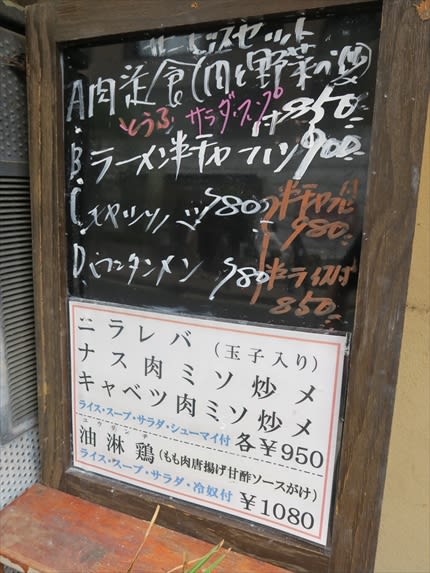 サービスセット
A 肉定食(肉と野菜の炒)
とうふ サラダ・スープ付 850
B ラーメン半チャーハン 900
C 780 半チャーハン付
980
D ワンタンメン 780 半ライス付
850
ニラレバ(玉子入り)
ナス肉ミソ炒メ
キャベツ肉ミソ炒メ
ライス・スープ・サラダ・シューマイ付 各¥950
油淋鶏(もも肉唐揚げ甘酢ソースがけ)
ライス・スープ・サラダ・冷奴付 ¥1080